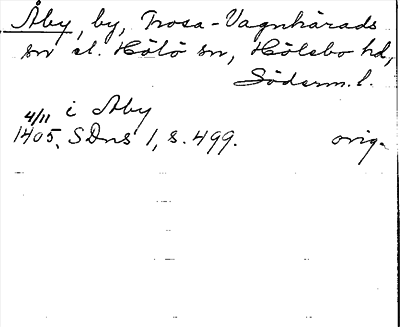 Åby, by, Trosa-Vagnhärads
sn el. Hölö sn, Hölebo hd,
Söderm. l.
4/11 i Åby
1405, SDns 1, s. 499. orig.